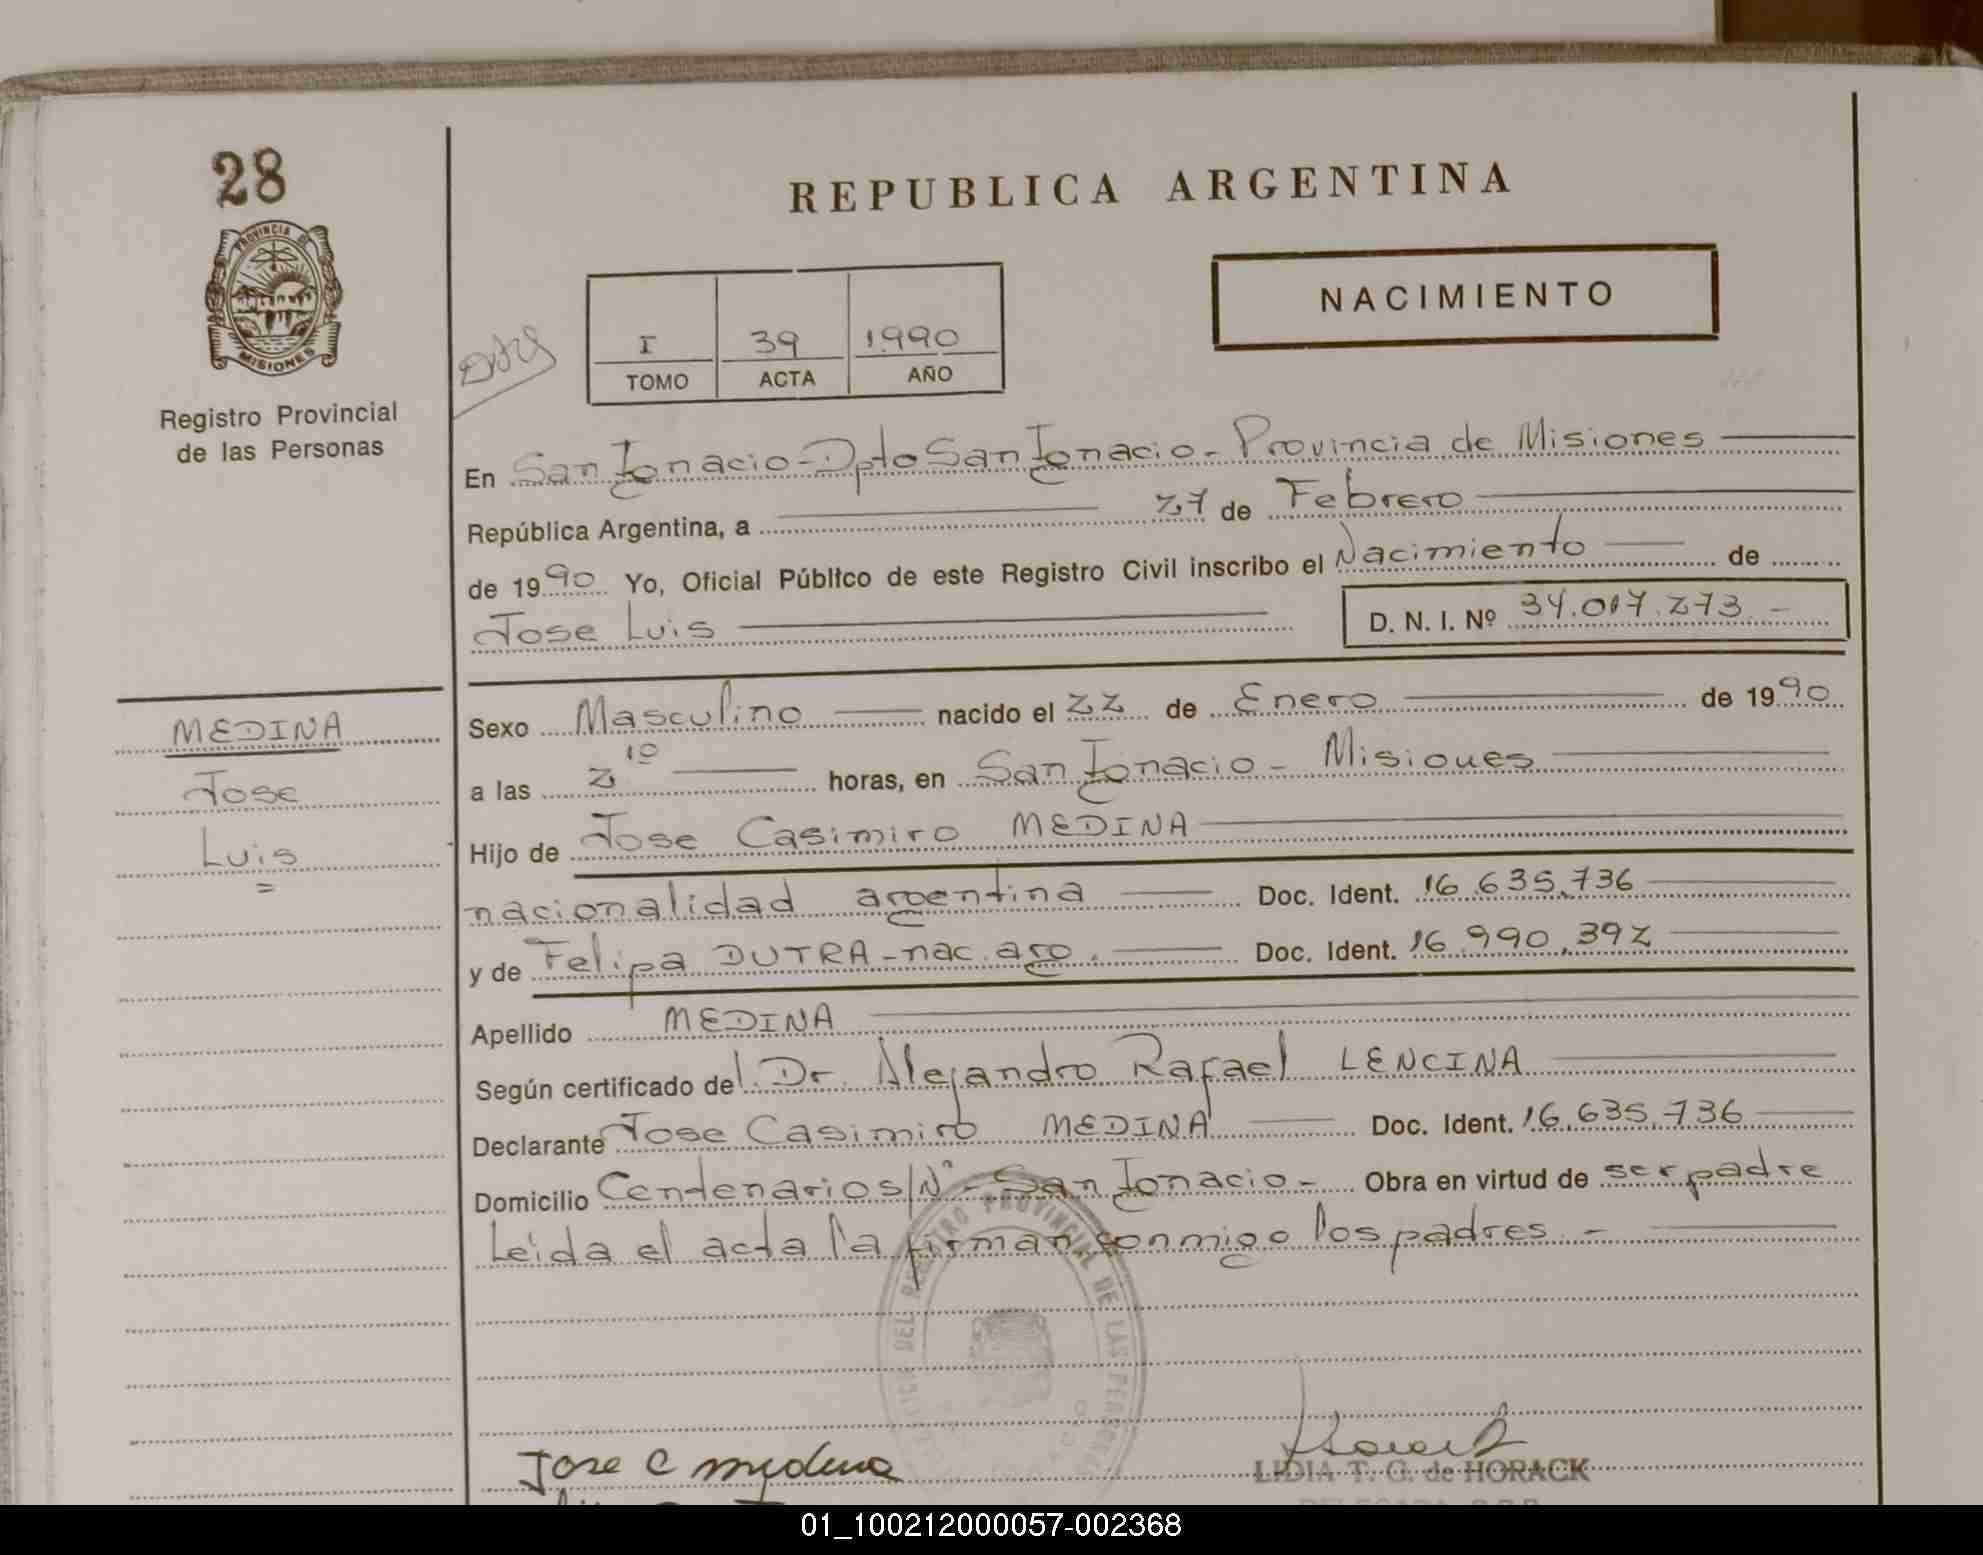 28
PROVINCIA DE
MISIONES
Registro Provincial
de las Personas
REPUBLICA ARGENTINA
NACIMIENTO
I 39 1990
TOMO ACTA AÑO
En San Ignacio - Dpto San Ignacio - Provincia de Misiones
República Argentina, a 27 de Febrero
de 1990 Yo, Oficial Público de este Registro Civil inscribo el Nacimiento de
Jose Luis D. N. I. Nº 34.017.273.-
MEDINA
Jose
Luis
Sexo Masculino nacido el 22 de Enero de 1990
a las 2 10 horas, en San Ignacio - Misiones
Hijo de Jose Casimiro MEDINA
nacionalidad argentina Doc. Ident. 16.635.736
y de Felipa DUTRA - nac. arg. Doc. Ident. 16.990.392
Apellido MEDINA
Según certificado del Dr. Alejandro Rafael LENCINA
Declarante Jose Casimiro MEDINA Doc. Ident. 16.635.736
Domicilio Centenario s/Nº - San Ignacio - Obra en virtud de ser padre
Leida el acta la firman conmigo los padres -
REGISTRO PROVINCIAL DE LAS PERSONAS
Jose C Medina
LIDIA T. G. de HORACK
01_100212000057-002368